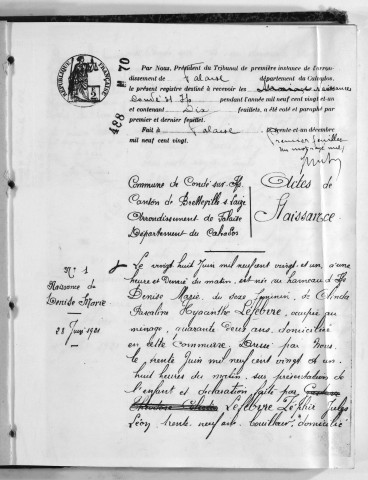 RÉPUBLIQUE FRANÇAISE
2
488 № 70
Par Nous, Président du Tribunal de première instance de l'arron-
dissement de Falaise département du Calvados,
le présent registre destiné à recevoir les naissances
Condé s/ Ifs pendant l'année mil neuf cent vingt et un
et contenant Dix feuillets, a été coté et paraphé par
premier et dernier feuillet.
Fait à Falaise, le trente et un décembre
mil neuf cent vingt.
Premier feuillet
Commune de Condé-sur-Ifs
Canton de Bretteville s/ Laize
Arrondissement de Falaise
Département du Calvados
Actes de
Naissance.
N° 1
Naissance de
Denise Marie
28 Juin 1921
Le vingt huit Juin mil neuf cent vingt et un, à une
heure et demie du matin, est née au hameau d'Ifs
Denise Marie, du sexe féminin, de
Hyacinthe Lefebvre, occupée au
ménage, quarante deux ans, domiciliée
en cette Commune. Dressé par Nous,
le trente Juin mil neuf cent vingt et un,
huit heures du matin, sur présentation de
l'enfant et déclaration faite par
Lefebvre Jules
Léon, trente neuf ans, domicilié